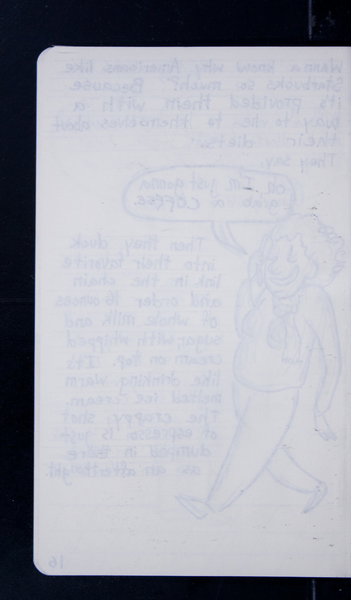 Wanna know why Americans like
Starbucks so much? Because
it's provided them with a
way to lie to themselves about
their diets.
They say,
oh I'm just gonna
grab a coffee.
Then they duck
into their favorite
link in the chain
and order 16 ounces
of whole milk and
sugar, with whipped
cream on top. It's
like drinking warm
melted ice cream.
The crappy shot
of espresso is just
dumped in there
as an afterthought.
16